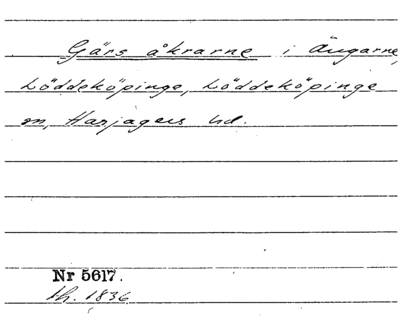 Gärs åkrarne i Ängarne,
Löddeköpinge, Löddeköpinge
sn, Harjagers hd.
Nr 5617.
th. 1836